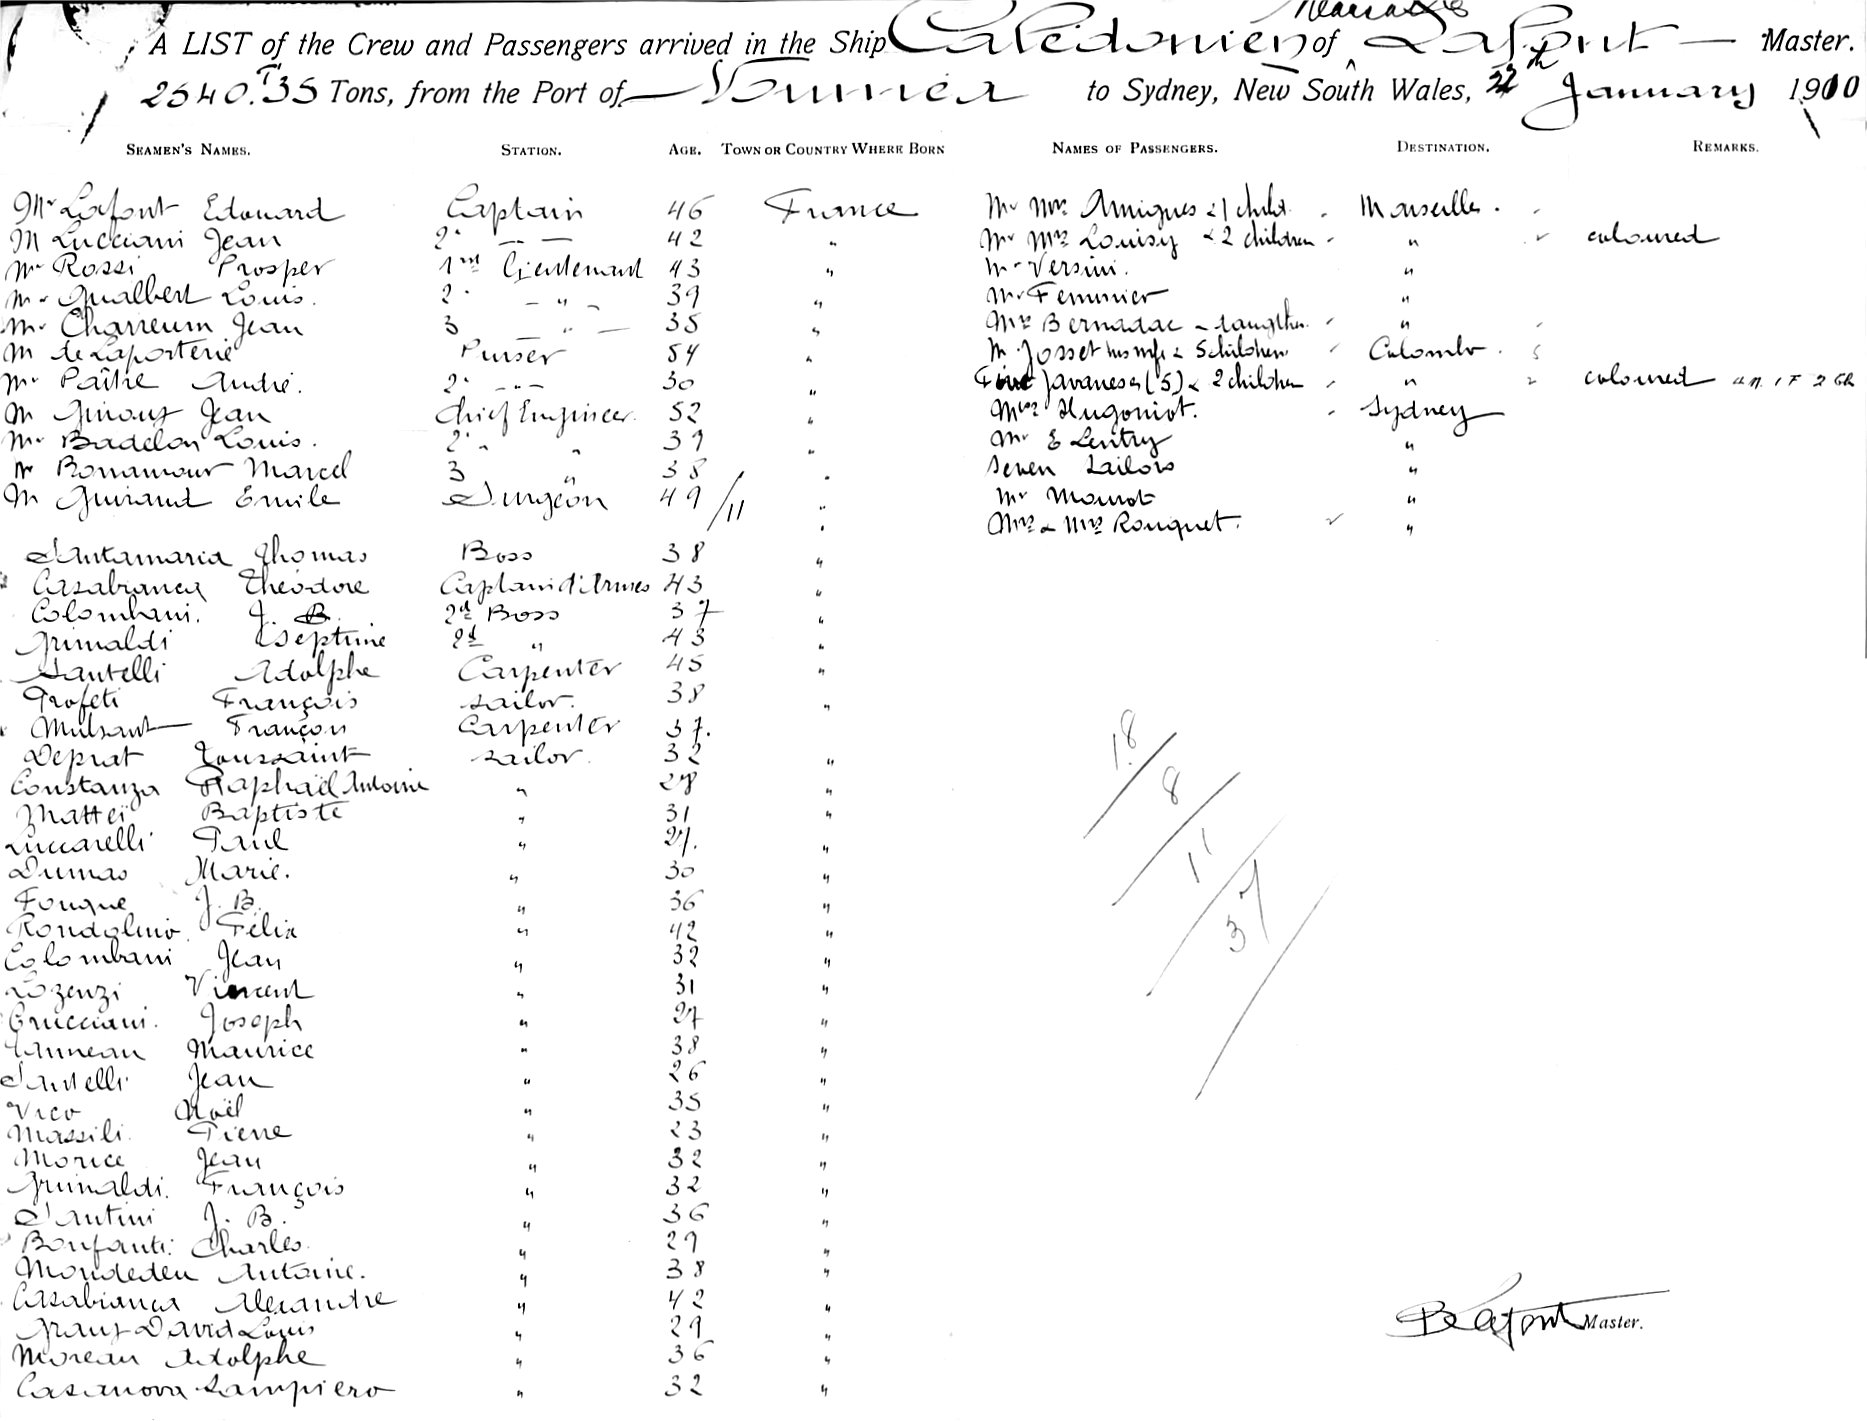 A LIST of the Crew and Passengers arrived in the Ship Calédonien of Lafont Master.
2540.T35 Tons, from the Port of Noumea to Sydney, New South Wales, January 1910
SEAMEN'S NAMES. STATION. AGE. TOWN OR COUNTRY WHERE BORN NAMES OF PASSENGERS. DESTINATION. REMARKS.
Mr Lafont Edouard Captain 46 France Mr Mrs Amigues & 1 child. Marseilles.
M Lucciani Jean 2. " 42 " Mr Mrs Louisy & 2 children " coloured
Mr Rossi Prosper 1st lieutenant 43 " Mr Versini. "
Mr Gualbert Louis. 2. " 39 " Mr Feminier "
Mr Charreum Jean 3 " 35 " Mrs Bernadac & daugther "
M de Laporterie Purser 54 " M. Josset his wife & 5 children Colombo.
Mr Païhe André. 2. " 30 " Five Javaneses (5) & 2 children " coloured 4 M. 1 F 2 Ch
M Giraux Jean Chief Engineer. 52 " Mrs Hugoniot. Sydney
Mr Badelon Louis. 2. " 39 " Mr E Lentry "
Mr Bonamour Marcel 3 " 38 " Seven Sailors "
M Guiraud Emile Surgeon 49 /11 " Mr Mourot "
Mrs & Mrs Rouquet. "
Santamaria Thomas Boss 38 "
Casabianca Théodore Captain d'Armes 43 "
Colombani. J. B. 2d Boss 37 "
Grimaldi Cseptime 2d " 43 "
Santelli Adolphe Carpenter 45 "
Profeti François sailor. 38 "
Mulsant François Carpenter 37.
Deprat Toussaint sailor. 32 "
Constanza Raphaël Antoine " 28 "
Matteï Baptiste " 31 "
Luccarelli Paul " 27. "
Dumas Marie. " 30 "
Fouque J. B. " 36 "
Rondolino Félix " 42 "
Colombani Jean " 32 "
Lozenzi Vincent " 31 "
Crucciani. Joseph " 27 "
Tanneau Maurice " 38 "
Santelli Jean " 26 "
Vico Noël " 35 "
Massili. Pierre " 23 "
Morice Jean " 32 "
Grimaldi. François " 32 "
Santini J. B. " 36 "
Bonfanti. Charles. " 29 "
Mondedeu Antoine. " 38 "
Casabianca Alexandre " 42 "
Graux David Louis " 29 "
Moreau Adolphe " 36 "
Casanova Sampiero " 32 "
18
8
11
37
E Lafont Master.